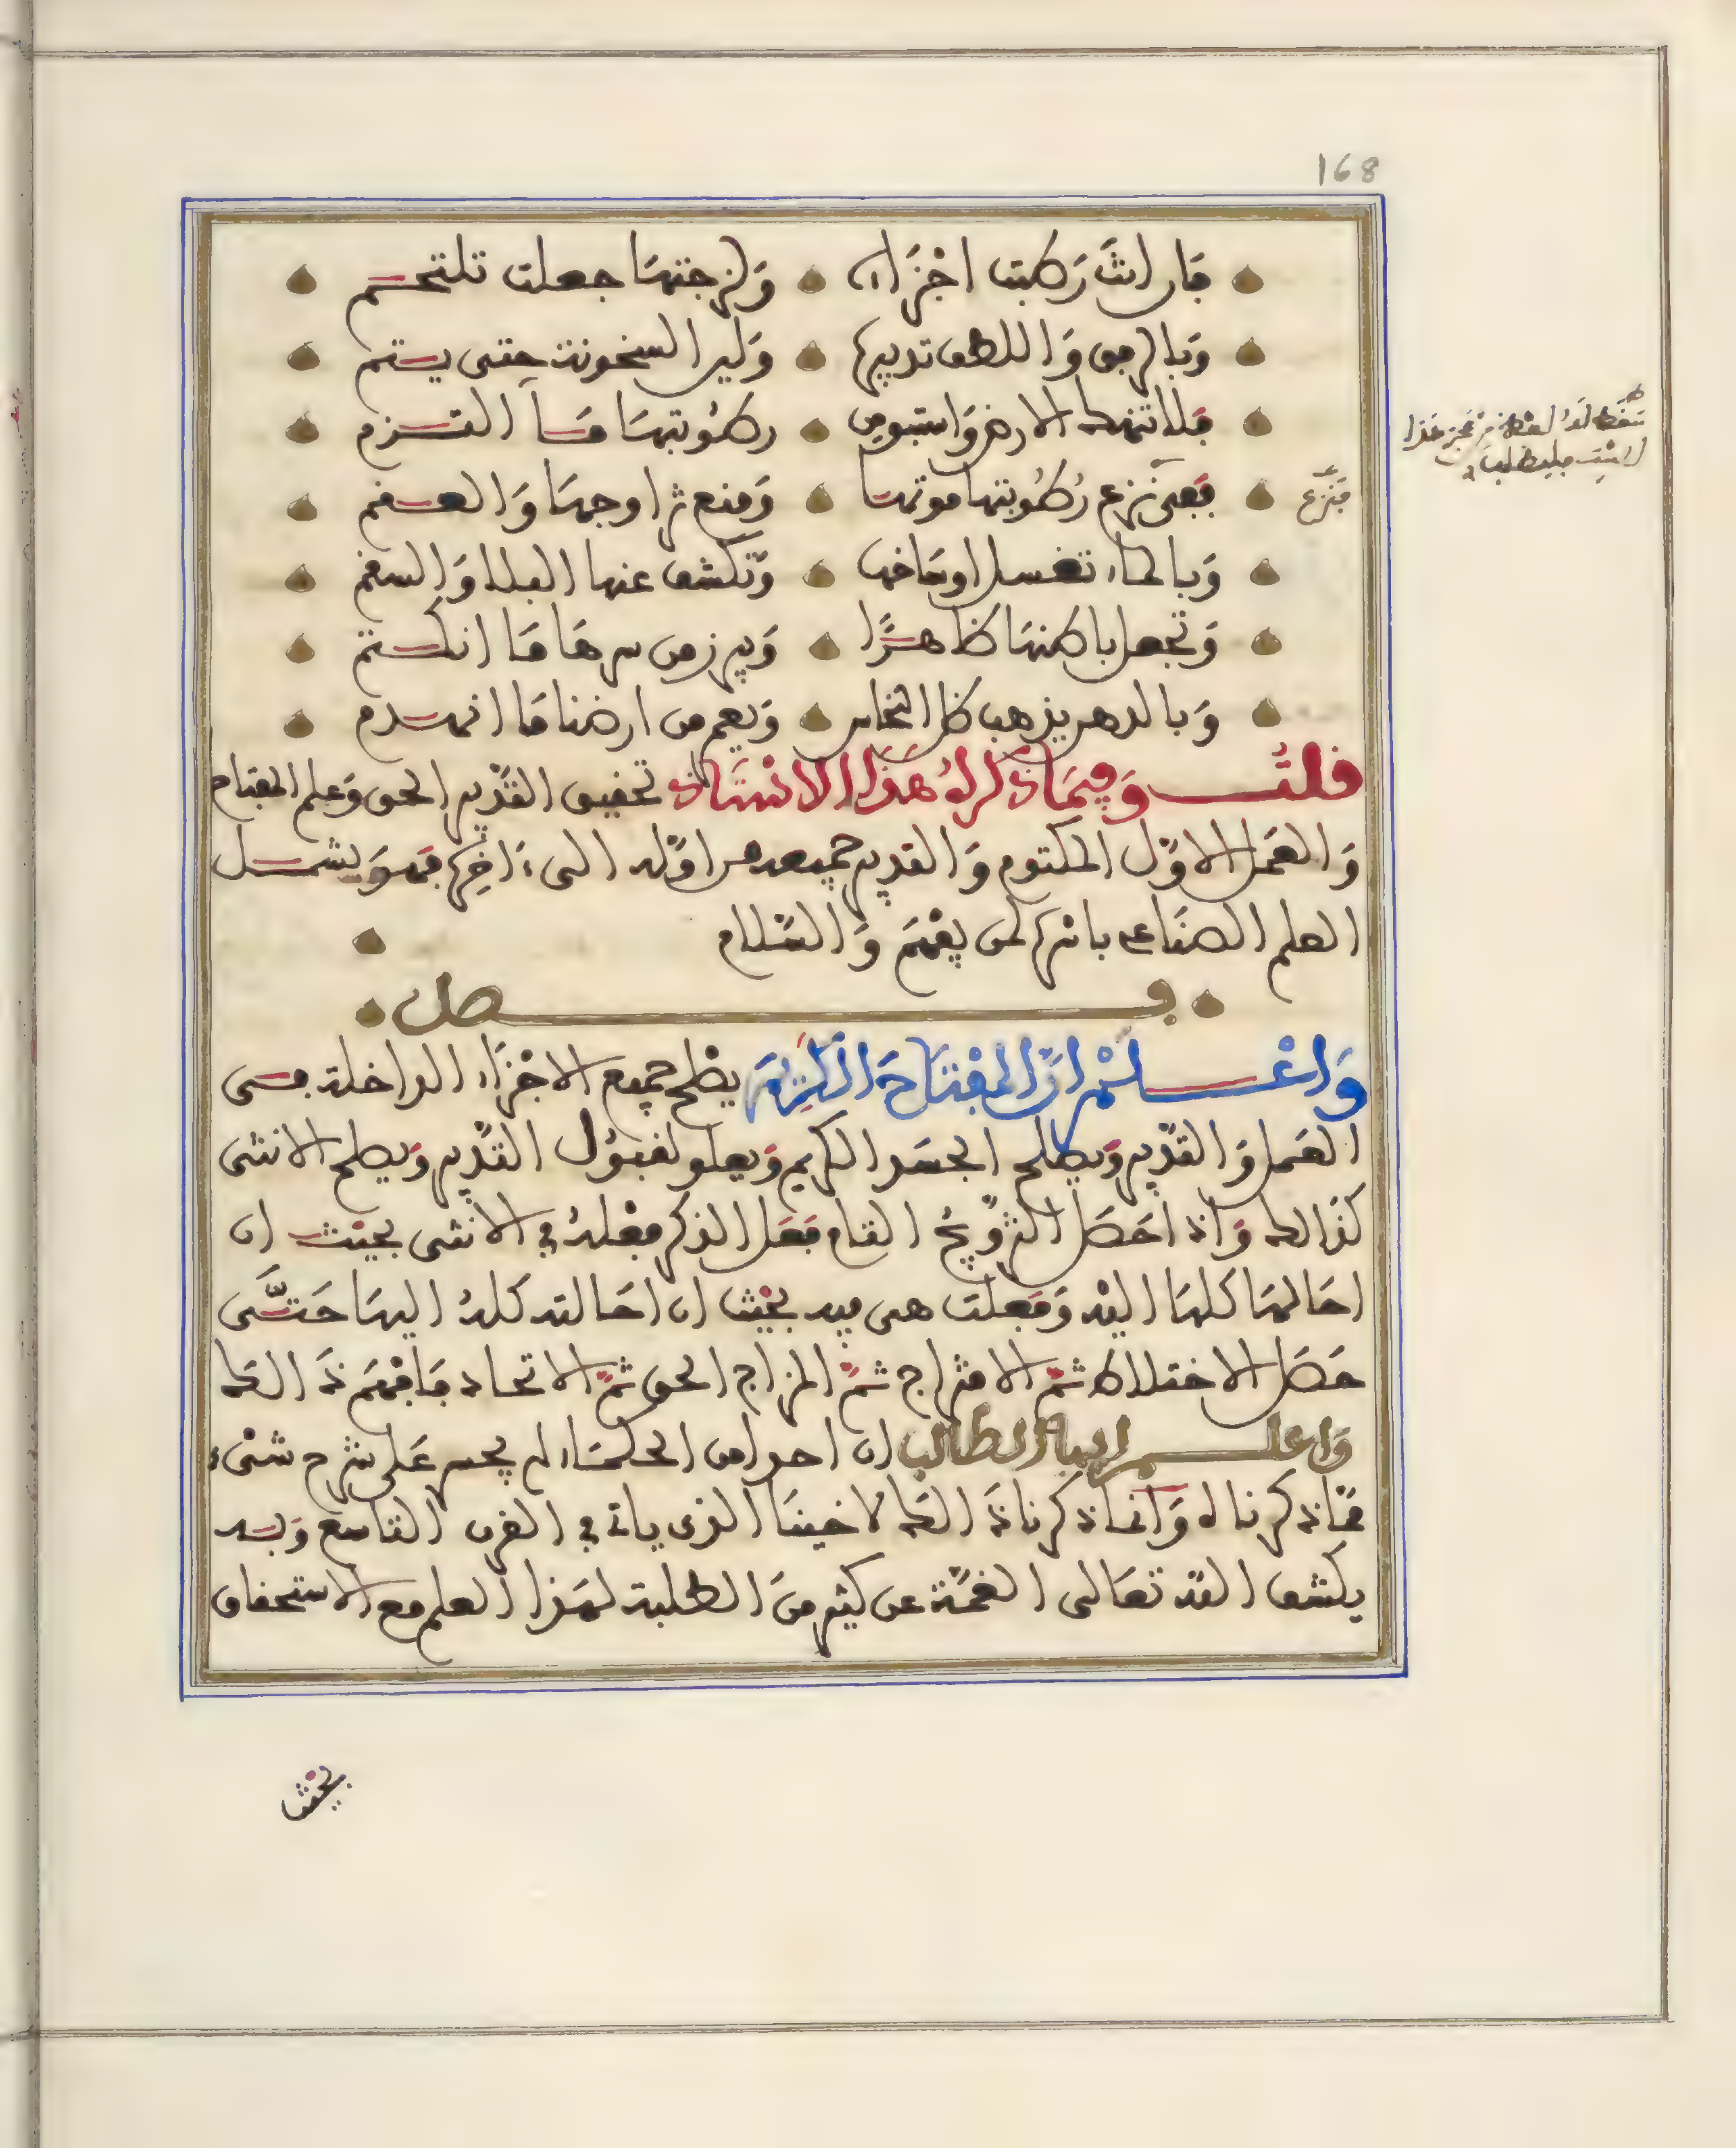 168
فإن انت ركبت اجزاءه ولزجتها جعلت تلتحم
وبالرفق واللطف تدبيرها ولين السخونة حتى يستم
فلا تنهك الارض واستبق من رطوبتها ما التزم
ففي نزع رطوبتها موتها ومنع ازاوجها والعقم
فنزع
وبالماء تغسل اوساخها وتكشف عنها البلا والسقم
وتجعل باطنها ظاهرا ويبرز من سرها ما انكتم
وبالدهن يذهب ظل النحاس ويعمر من ارضنا ما انهدم
قلت وفيما ذكره هذا الاستاذ تحقيق التدبير الحق وعلم المفتاح
والعمل الاول المكتوم والتدبير جميعه من اوله الى ءاخره فهو يشمل
العلم الصناعي باسره لمن يفهم والسلام
فصل
واعلم ان المفتاح الكريم يصلح جميع الاجزاء الداخلة في
العمل والتدبير ويصلح الجسد الكريم ويعلو لقبول التدبير ويصلح الانثى
كذالك واذا حصل التزويج التام فعل الذكر فعله في الانثى بحيث ان
احالها كلها اليه وفعلت هي فيه بحيث ان احالته كله اليها حتى
حصل الاختلاط ثم الامتزاج ثم المزاج الحق ثم الاتحاد فافهم ذالك
واعلم ايها الطالب ان احدا من الحكماء لم يجسر على شرح شيء
مما ذكرناه وانما ذكرنا ذالك لاخينا الذي ياتي في القرن التاسع وبه
يكشف الله تعالى الغمة عن كثير من الطلبة لهذا العلم مع الاستحقاق
بحيث